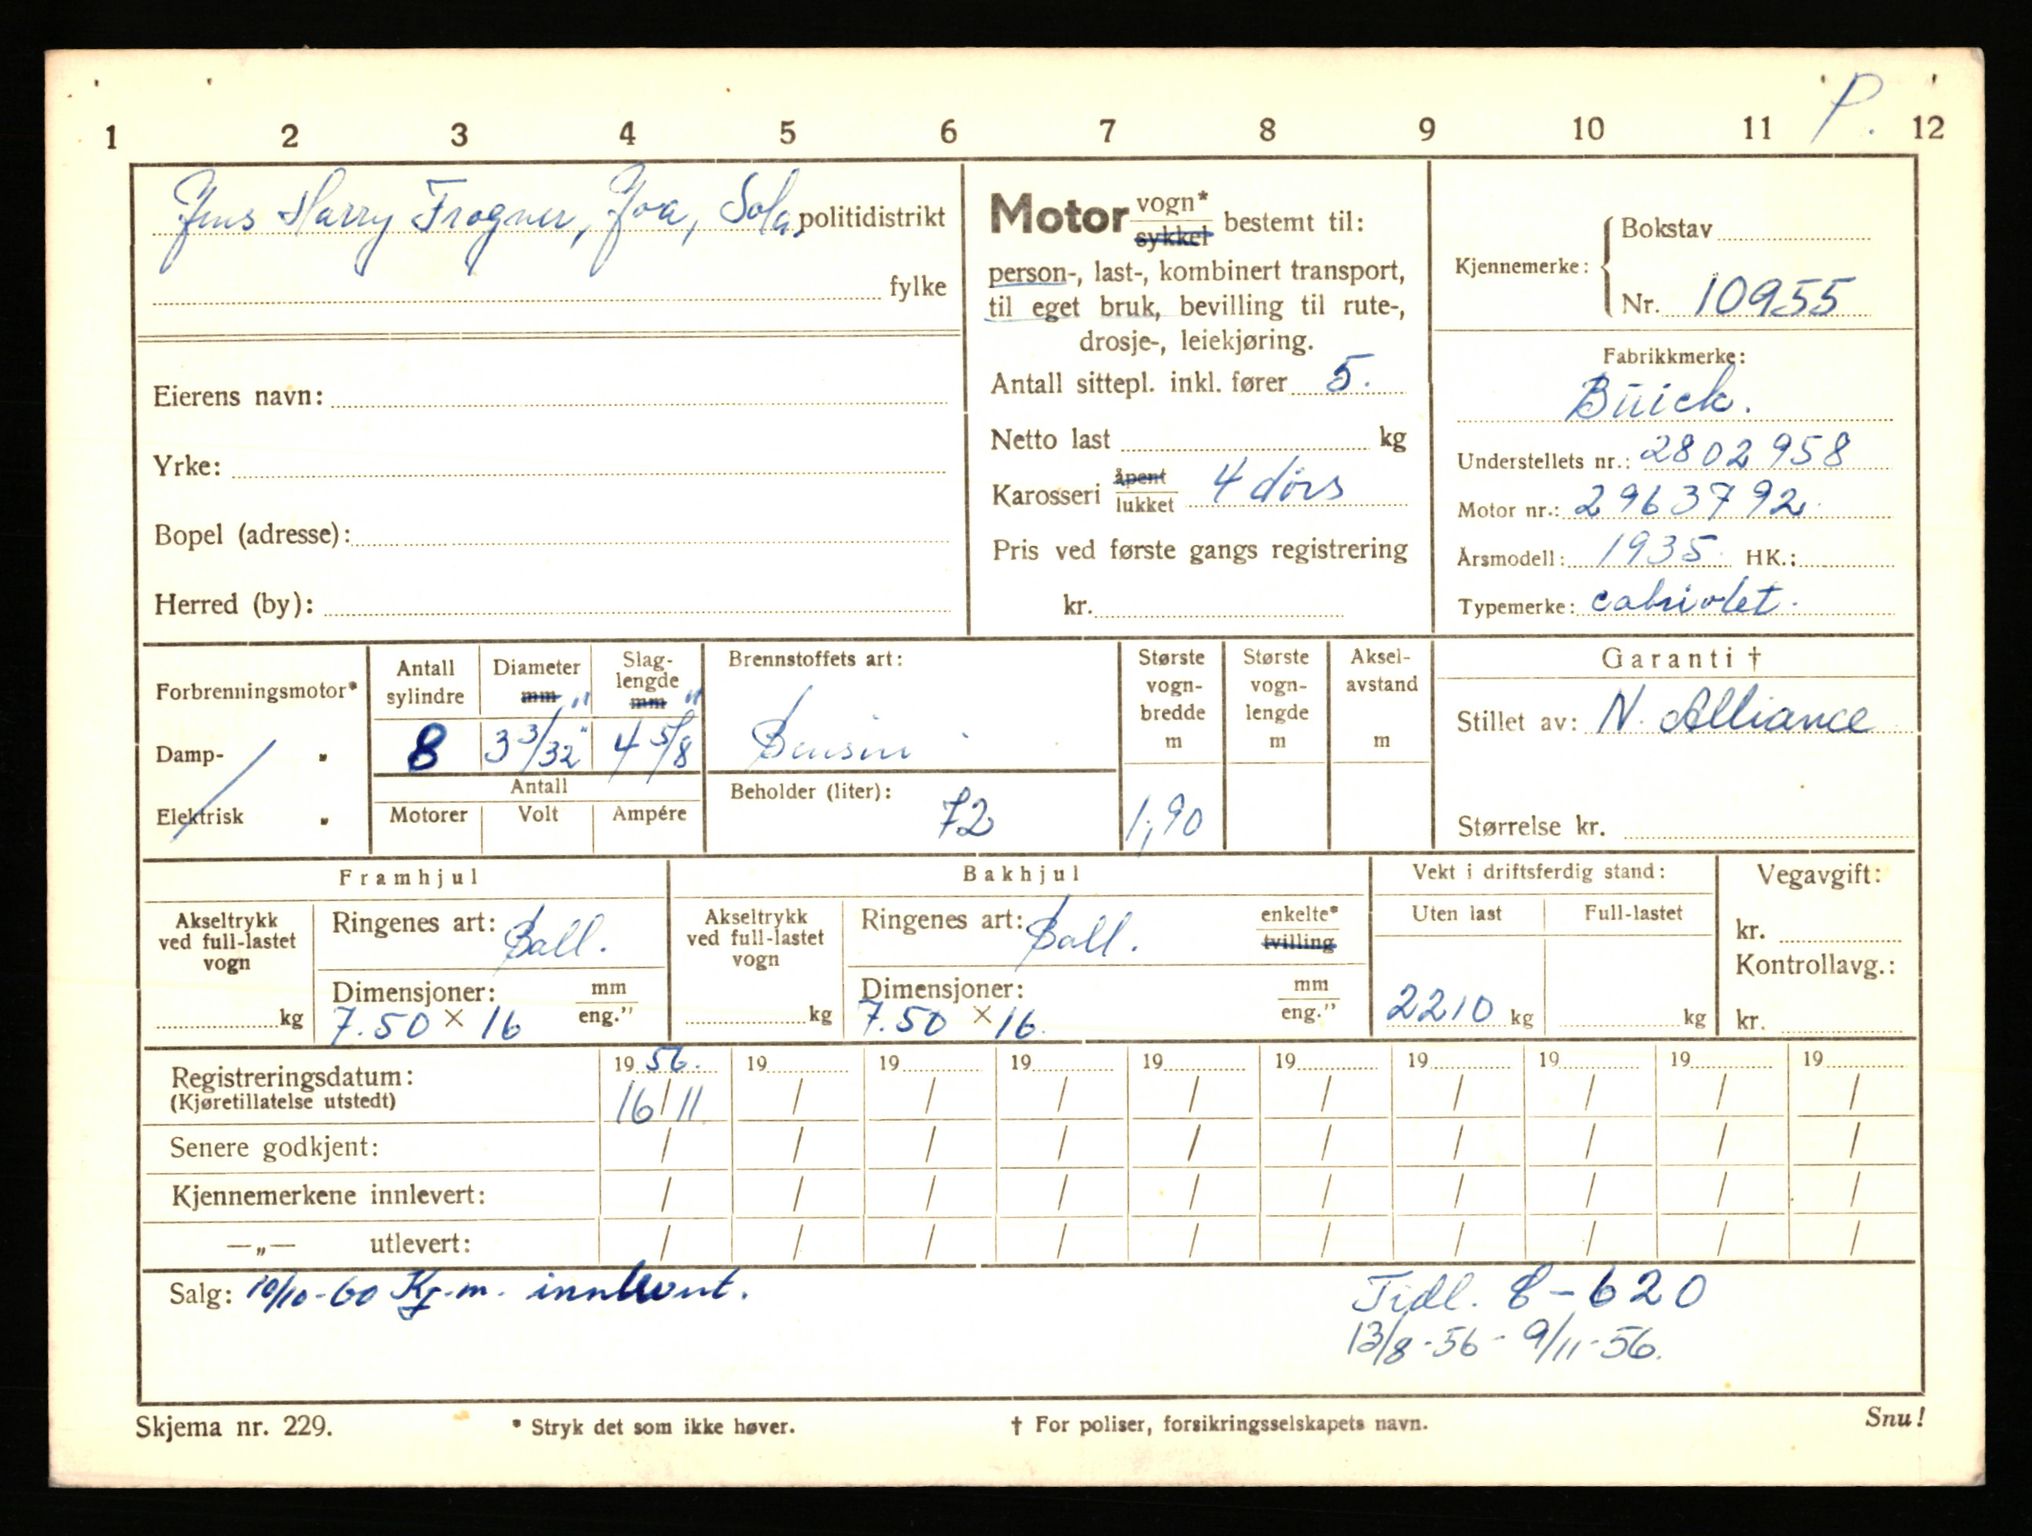 P.
1 2 3 4 5 6 7 8 9 10 11 12
Jens Harry Frogner, Joa, Sola, politidistrikt
fylke
Eierens navn:
Yrke:
Bopel (adresse):
Herred (by):
Motor vogn* sykkel bestemt til:
person-, last-, kombinert transport,
til eget bruk, bevilling til rute-,
drosje-, leiekjøring.
Antall sittepl. inkl. fører 5.
Netto last kg
Karosseri åpent lukket 4 dørs
Pris ved første gangs registrering
kr.
Kjennemerke: Bokstav
Nr. 10955
Fabrikkmerke:
Buick.
Understellets nr.: 2802958
Motor nr.: 2963792.
Årsmodell: 1935 HK.:
Typemerke: cabriolet.
Forbrenningsmotor*
Damp- "
Elektrisk "
Antall sylindre
8
Diameter mm "
3 3/32"
Slag-lengde mm "
4 5/8
Antall
Motorer Volt Ampére
Brennstoffets art:
Bensin
Beholder (liter):
72
Største vogn-bredde m
1,90
Største vogn-lengde m
Aksel-avstand m
Garanti †
Stillet av: N. Alliance
Størrelse kr.
Framhjul
Akseltrykk ved full-lastet vogn
kg
Ringenes art: Ball.
Dimensjoner: mm eng."
7.50 × 16
Bakhjul
Akseltrykk ved full-lastet vogn
kg
Ringenes art: Ball. enkelte* tvilling
Dimensjoner: mm eng."
7.50 × 16.
Vekt i driftsferdig stand:
Uten last Full-lastet
2210 kg kg
Vegavgift:
kr.
Kontrollavg.:
kr.
Registreringsdatum: 19 56. 19 19 19 19 19 19 19 19 19
(Kjøretillatelse utstedt) 16/11 / / / / / / / / /
Senere godkjent: / / / / / / / / / /
Kjennemerkene innlevert: / / / / / / / / / /
—„— utlevert: / / / / / / / / / /
Salg: 10/10-60 Kj.m. innlevert.
Tidl. 8-620
13/8-56 - 9/11-56.
Skjema nr. 229. * Stryk det som ikke høver. † For poliser, forsikringsselskapets navn. Snu!